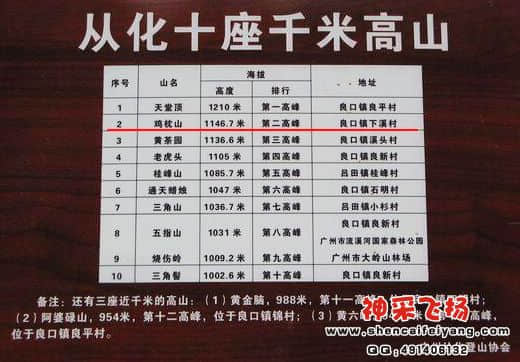 从化十座千米高山
序号 山名 海拔 地址
高度 排行
1 天堂顶 1210 米 第一高峰 良口镇良平村
2 鸡枕山 1146.7 米 第二高峰 良口镇下溪村
3 黄茶园 1136.6 米 第三高峰 良口镇溪头村
4 老虎头 1105 米 第四高峰 良口镇良新村
5 桂峰山 1085.7 米 第五高峰 吕田镇桂峰村
6 通天蜡烛 1047 米 第六高峰 良口镇石明村
7 三角山 1036.7 米 第七高峰 吕田镇小杉村
8 五指山 1031 米 第八高峰 良口镇良新村
广州市流溪河国家森林公园
9 烧伤岭 1009.2 米 第九高峰 广州市大岭山林场
10 三角髻 1002.6 米 第十高峰 良口镇良新村
备注：还有三座近千米的高山：（1）黄金脑，988米，第十一高峰
（2）阿婆碌山，954米，第十二高峰，位于良口镇锦村；（3）黄
位于良口镇良平村。
神采飞扬
www.shencaifeiyang.com
登山协会